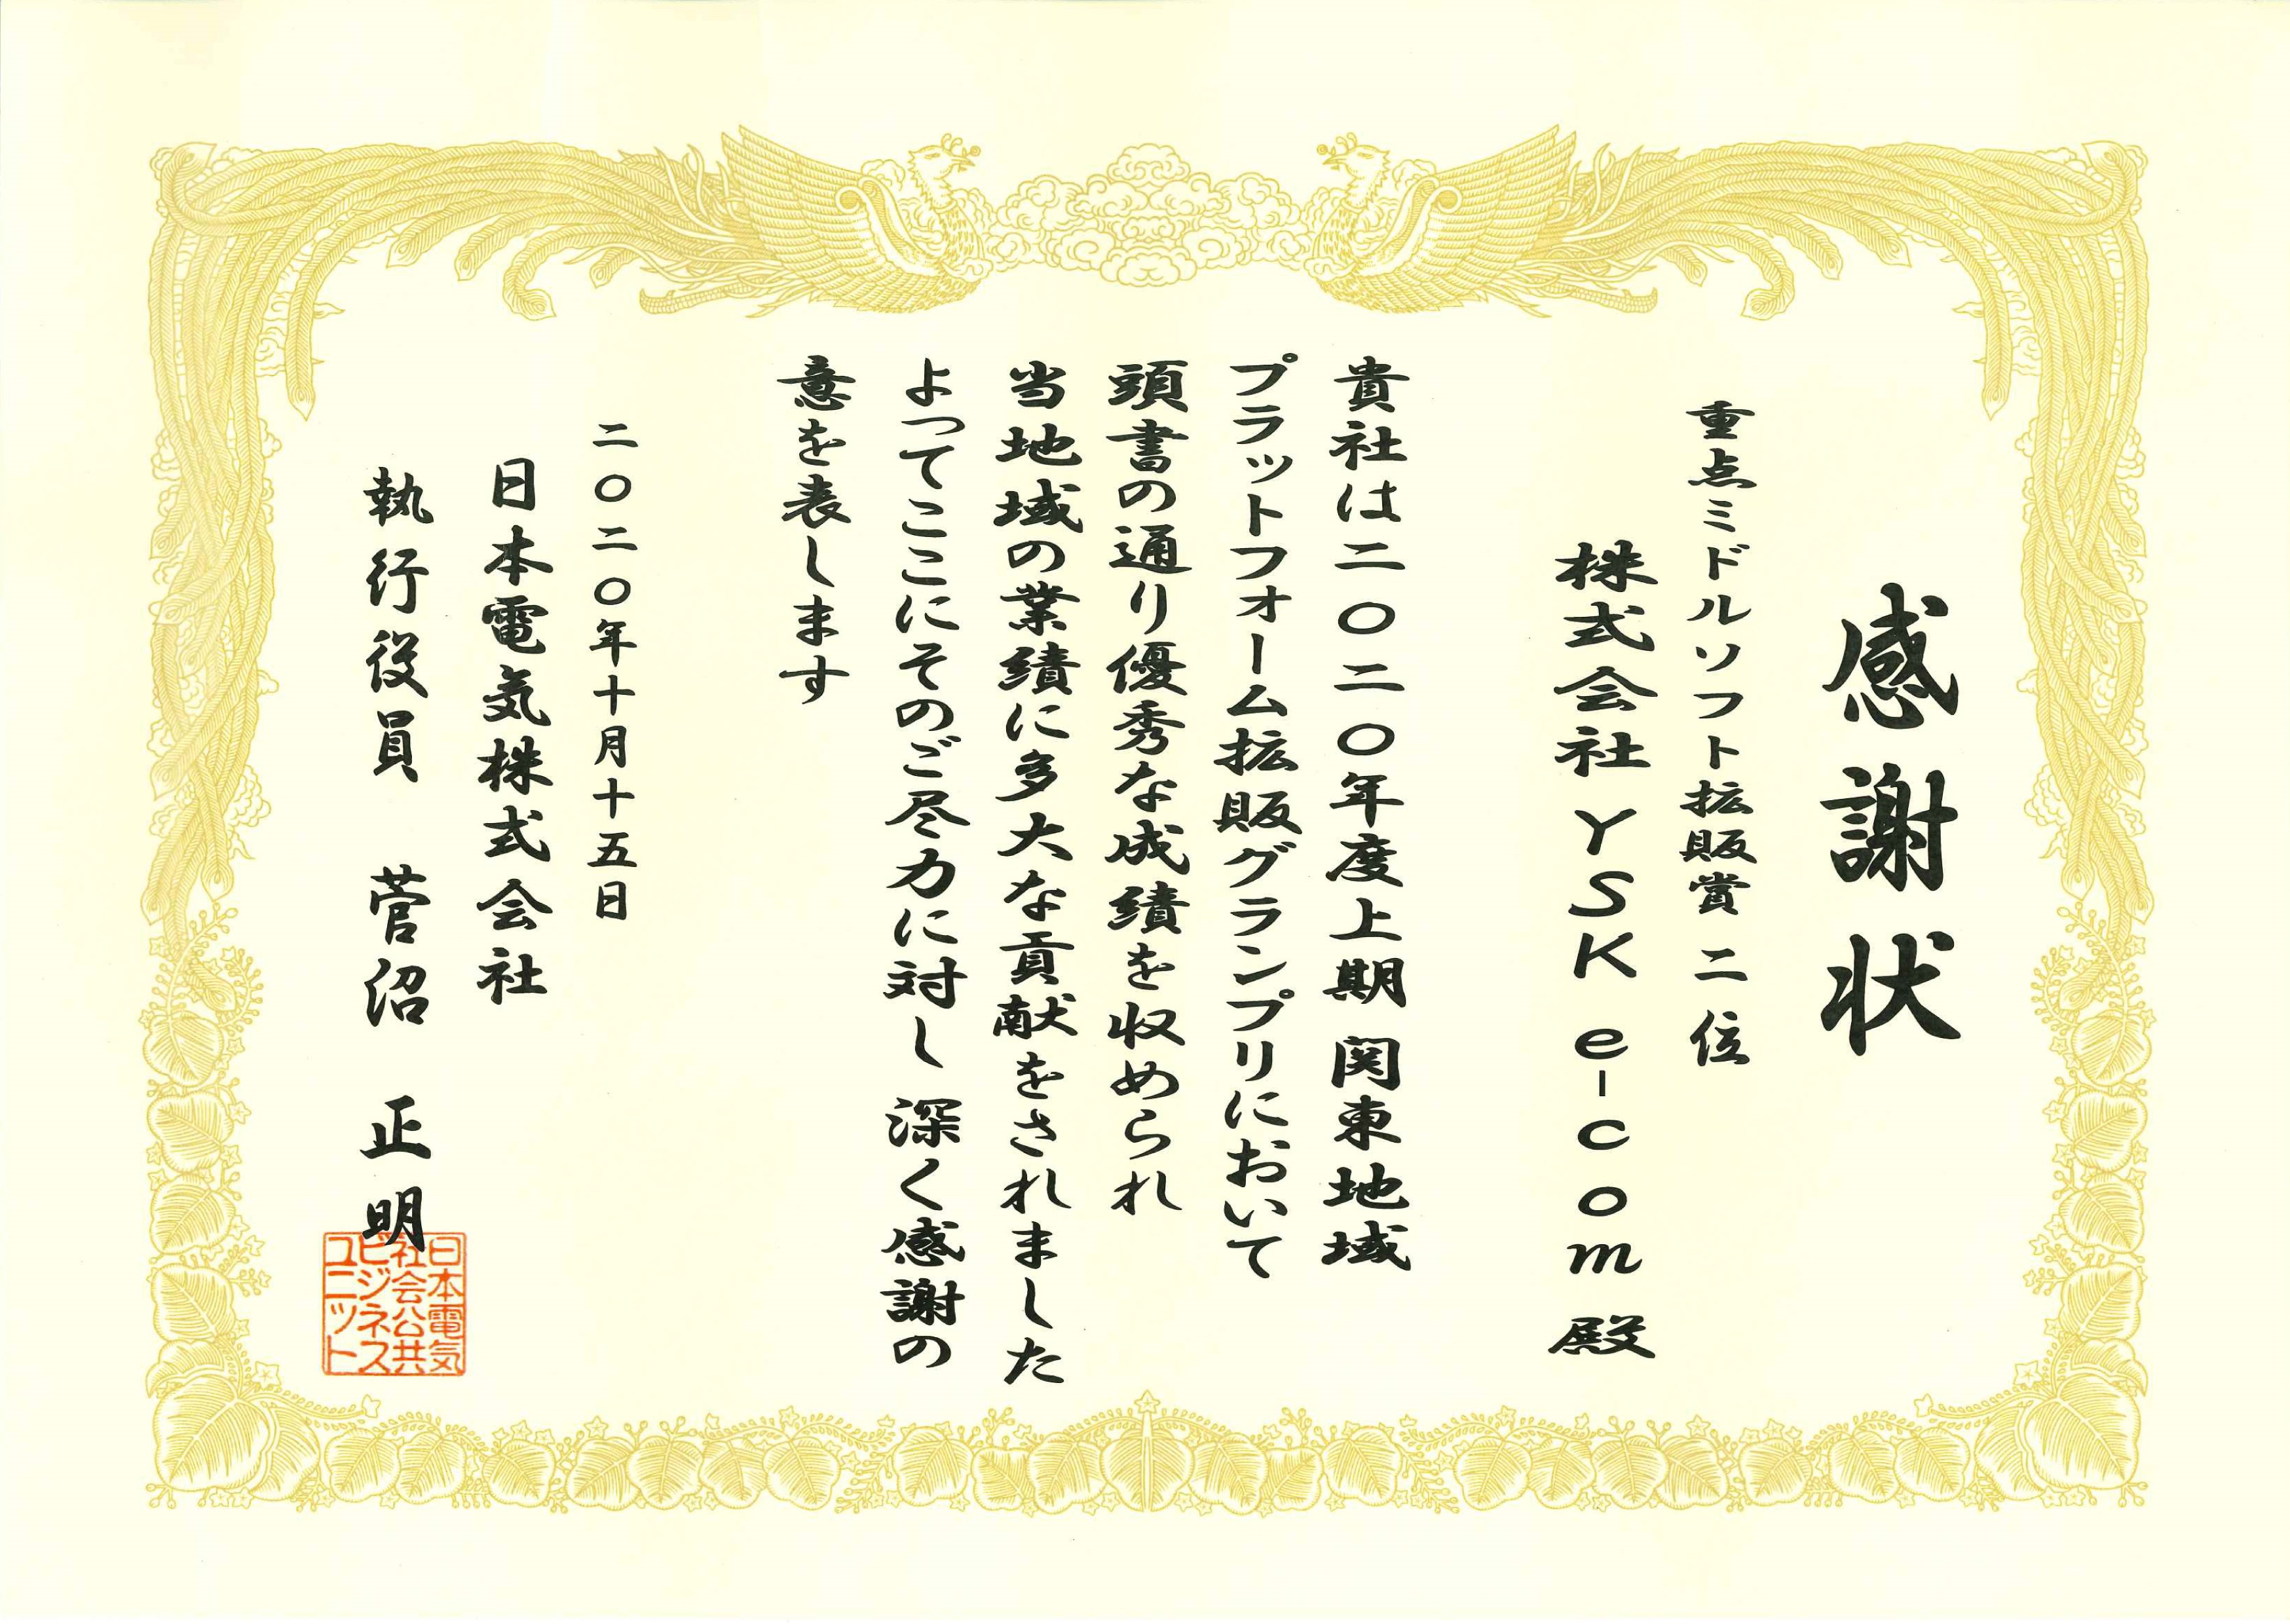 感謝状
重点ミドルソフト拡販賞 二位
株式会社YSK e-com 殿
貴社は二〇二〇年度上期 関東地域
プラットフォーム拡販グランプリにおいて
頭書の通り優秀な成績を収められ
当地域の業績に多大な貢献をされました
よってここにそのご尽力に対し 深く感謝の
意を表します
二〇二〇年十月十五日
日本電気株式会社
執行役員 菅沼 正明
日本電気
社会公共
ビジネス
ユニット